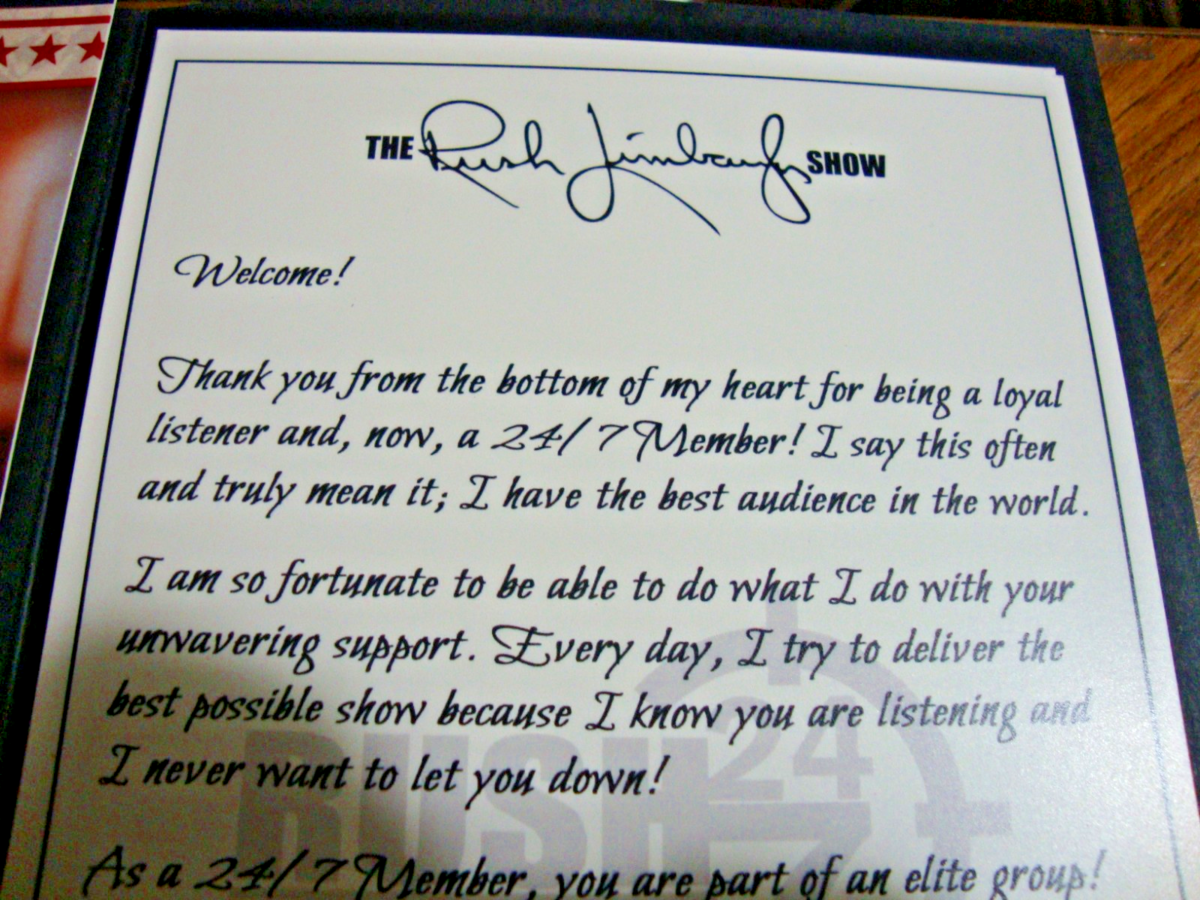 THE Rush Limbaugh SHOW
Welcome!
Thank you from the bottom of my heart for being a loyal
listener and, now, a 24/7 Member! I say this often
and truly mean it; I have the best audience in the world.
I am so fortunate to be able to do what I do with your
unwavering support. Every day, I try to deliver the
best possible show because I know you are listening and
I never want to let you down!
RUSH 24 7
As a 24/7 Member, you are part of an elite group!